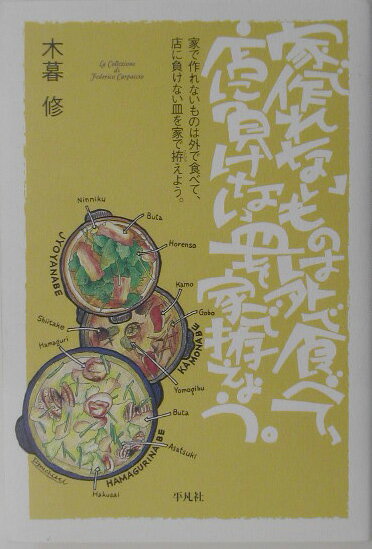 家で作れないものは外で食べて、
店に負けない皿を家で拵えよう。
家で作れないものは外で食べて、
店に負けない皿を家で拵えよう。
La Collezione
di
Federico Carpaccio
木暮 修
Ninniku
Buta
Horenso
JYOYANABE
Kamo
Gobo
Shiitake
KAMONABE
Hamaguri
Yomogibu
Buta
Asatsuki
HAMAGURINABE
Hakusai
平凡社